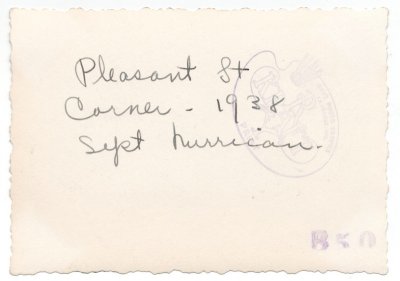 Pleasant St
Corner - 1938
Sept hurrican.
B50